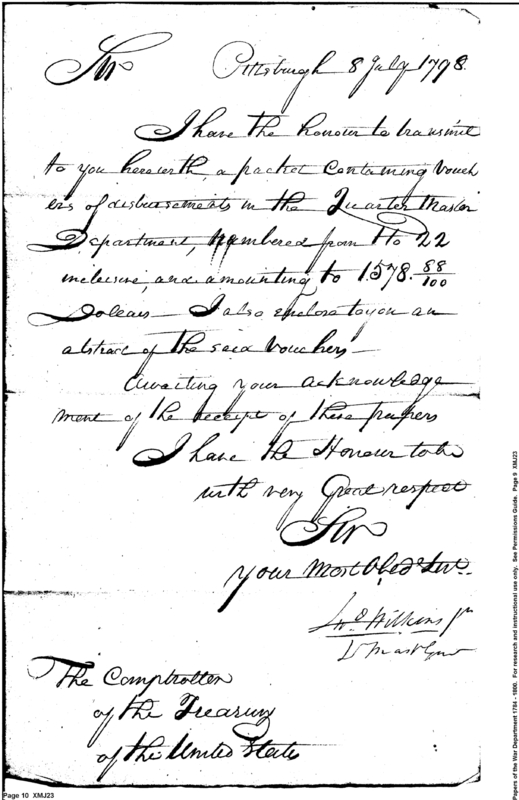 Sir Pittsburgh 8 July 1798.
I have the honour to transmit
to you herewith, a packet Containing Vouch
ers of disbursements in the Quarter Master
Department, Numbered from 1 to 22
inclusive, and amounting to 1.578. 88/100
Dollars — I also enclose to you an
abstract of the said Vouchers —
Awaiting your acknowledge
ment of the receipt of these papers
I have the Honour to be
with very Great respect
Sir
your Most Obed Servt.
Jno Wilkins Jr
Qr Mast Genl
The Comptroller
of the Treasury
of the United States
Page 10 XMJ23
Papers of the War Department 1784 - 1800. For research and instructional use only. See Permissions Guide. Page 9 XMJ23